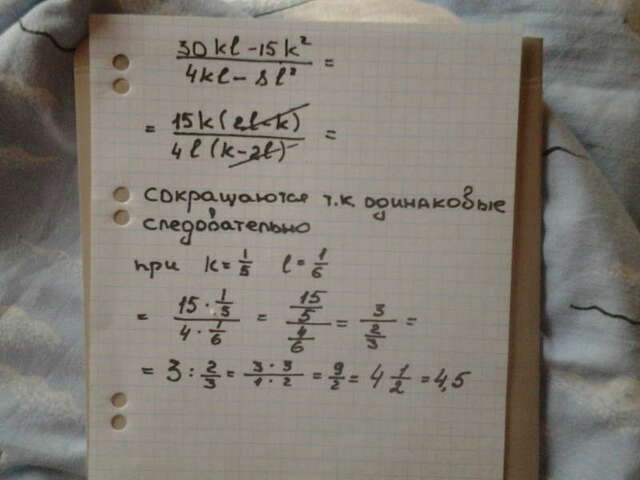 30kl - 15k² / 4kl - 8l² =
= 15k(2l-k) / 4l(k-2l) =
сокращаются т.к. одинаковые
следовательно
при k = 1/5 l = 1/6
= 15 · 1/5 / 4 · 1/6 = 15/5 / 4/6 = 3 / 2/3 =
= 3 : 2/3 = 3 · 3 / 1 · 2 = 9/2 = 4 1/2 = 4,5